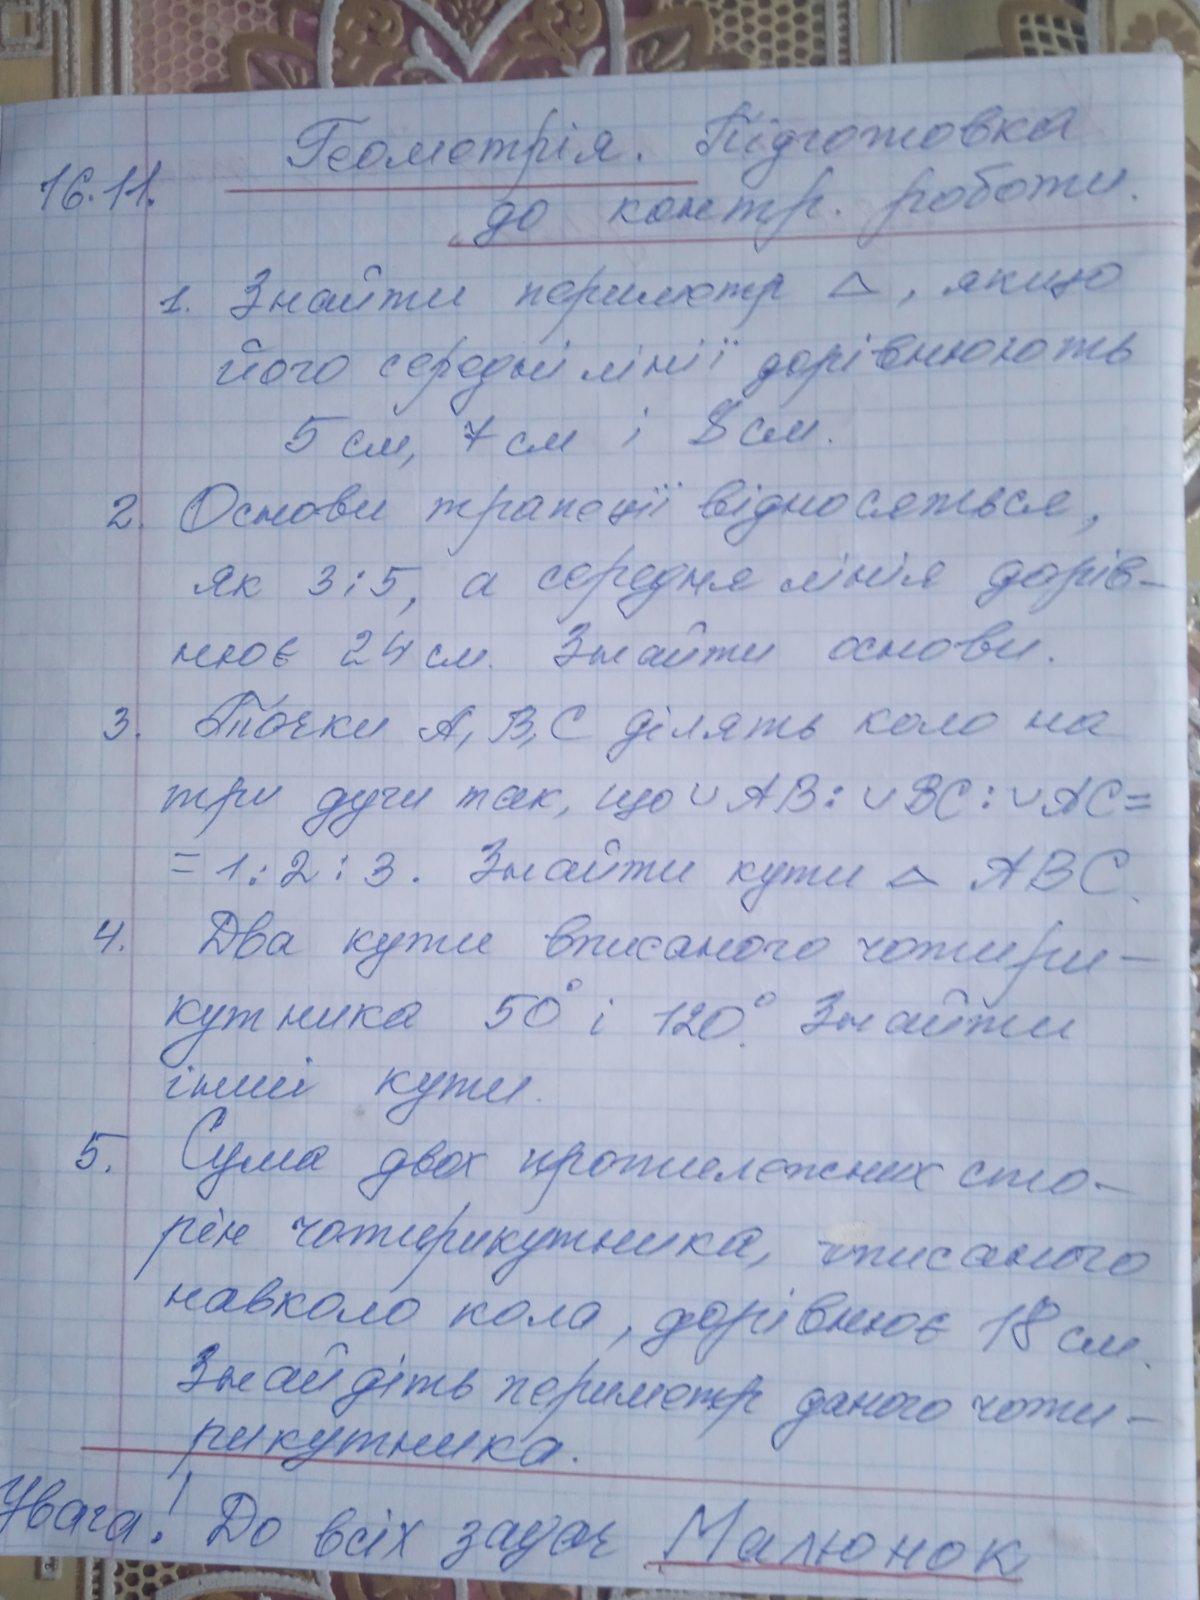 16.11. Геометрія. Підготовка
до контр. роботи.
1. Знайти периметр △, якщо
його середні лінії дорівнюють
5 см, 7 см і 8 см.
2. Основи трапеції відносяться,
як 3:5, а середня лінія дорів-
нює 24 см. Знайти основи.
3. Точки A, B, C ділять коло на
три дуги так, що ∪AB:∪BC:∪AC=
=1:2:3. Знайти кути △ ABC.
4. Два кути вписаного чотири-
кутника 50° і 120°. Знайти
інші кути.
5. Сума двох протилежних сто-
рін чотирикутника, описаного
навколо кола, дорівнює 18 см.
Знайдіть периметр даного чоти-
рикутника.
Увага! До всіх задач Малюнок